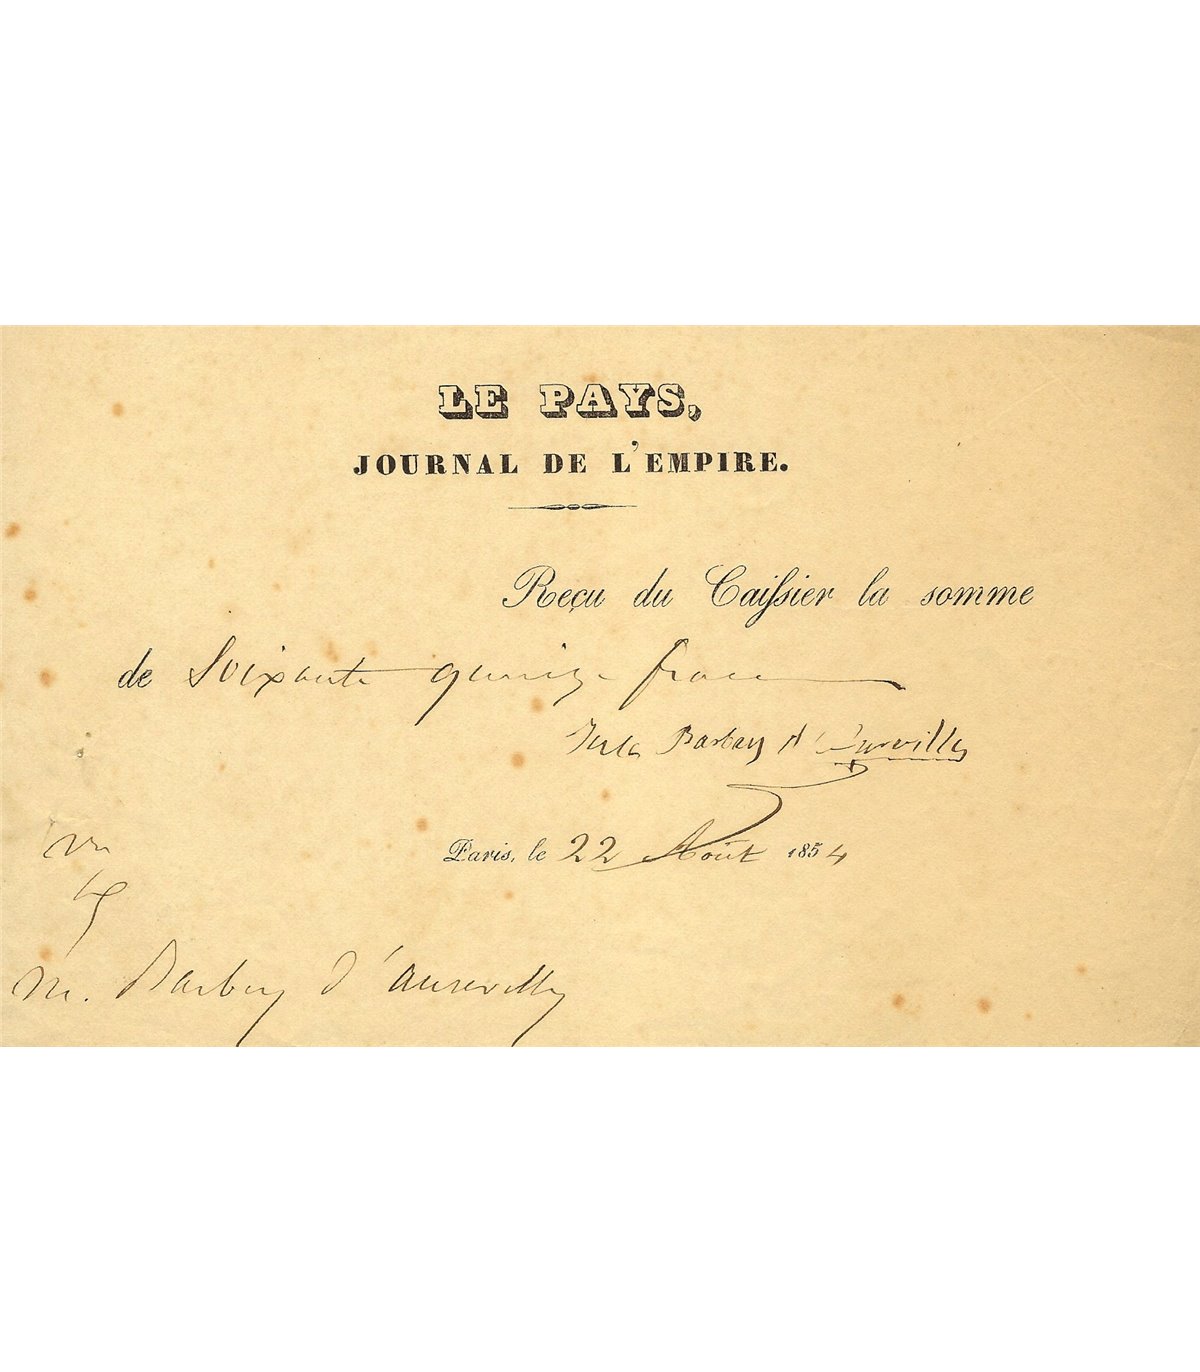 LE PAYS,
JOURNAL DE L'EMPIRE.
Reçu du Caissier la somme
de Soixante quinze francs
Jules Barbey d'Aurevilly
Paris, le 22 Août 1854
Vu
M. Barbey d'Aurevilly